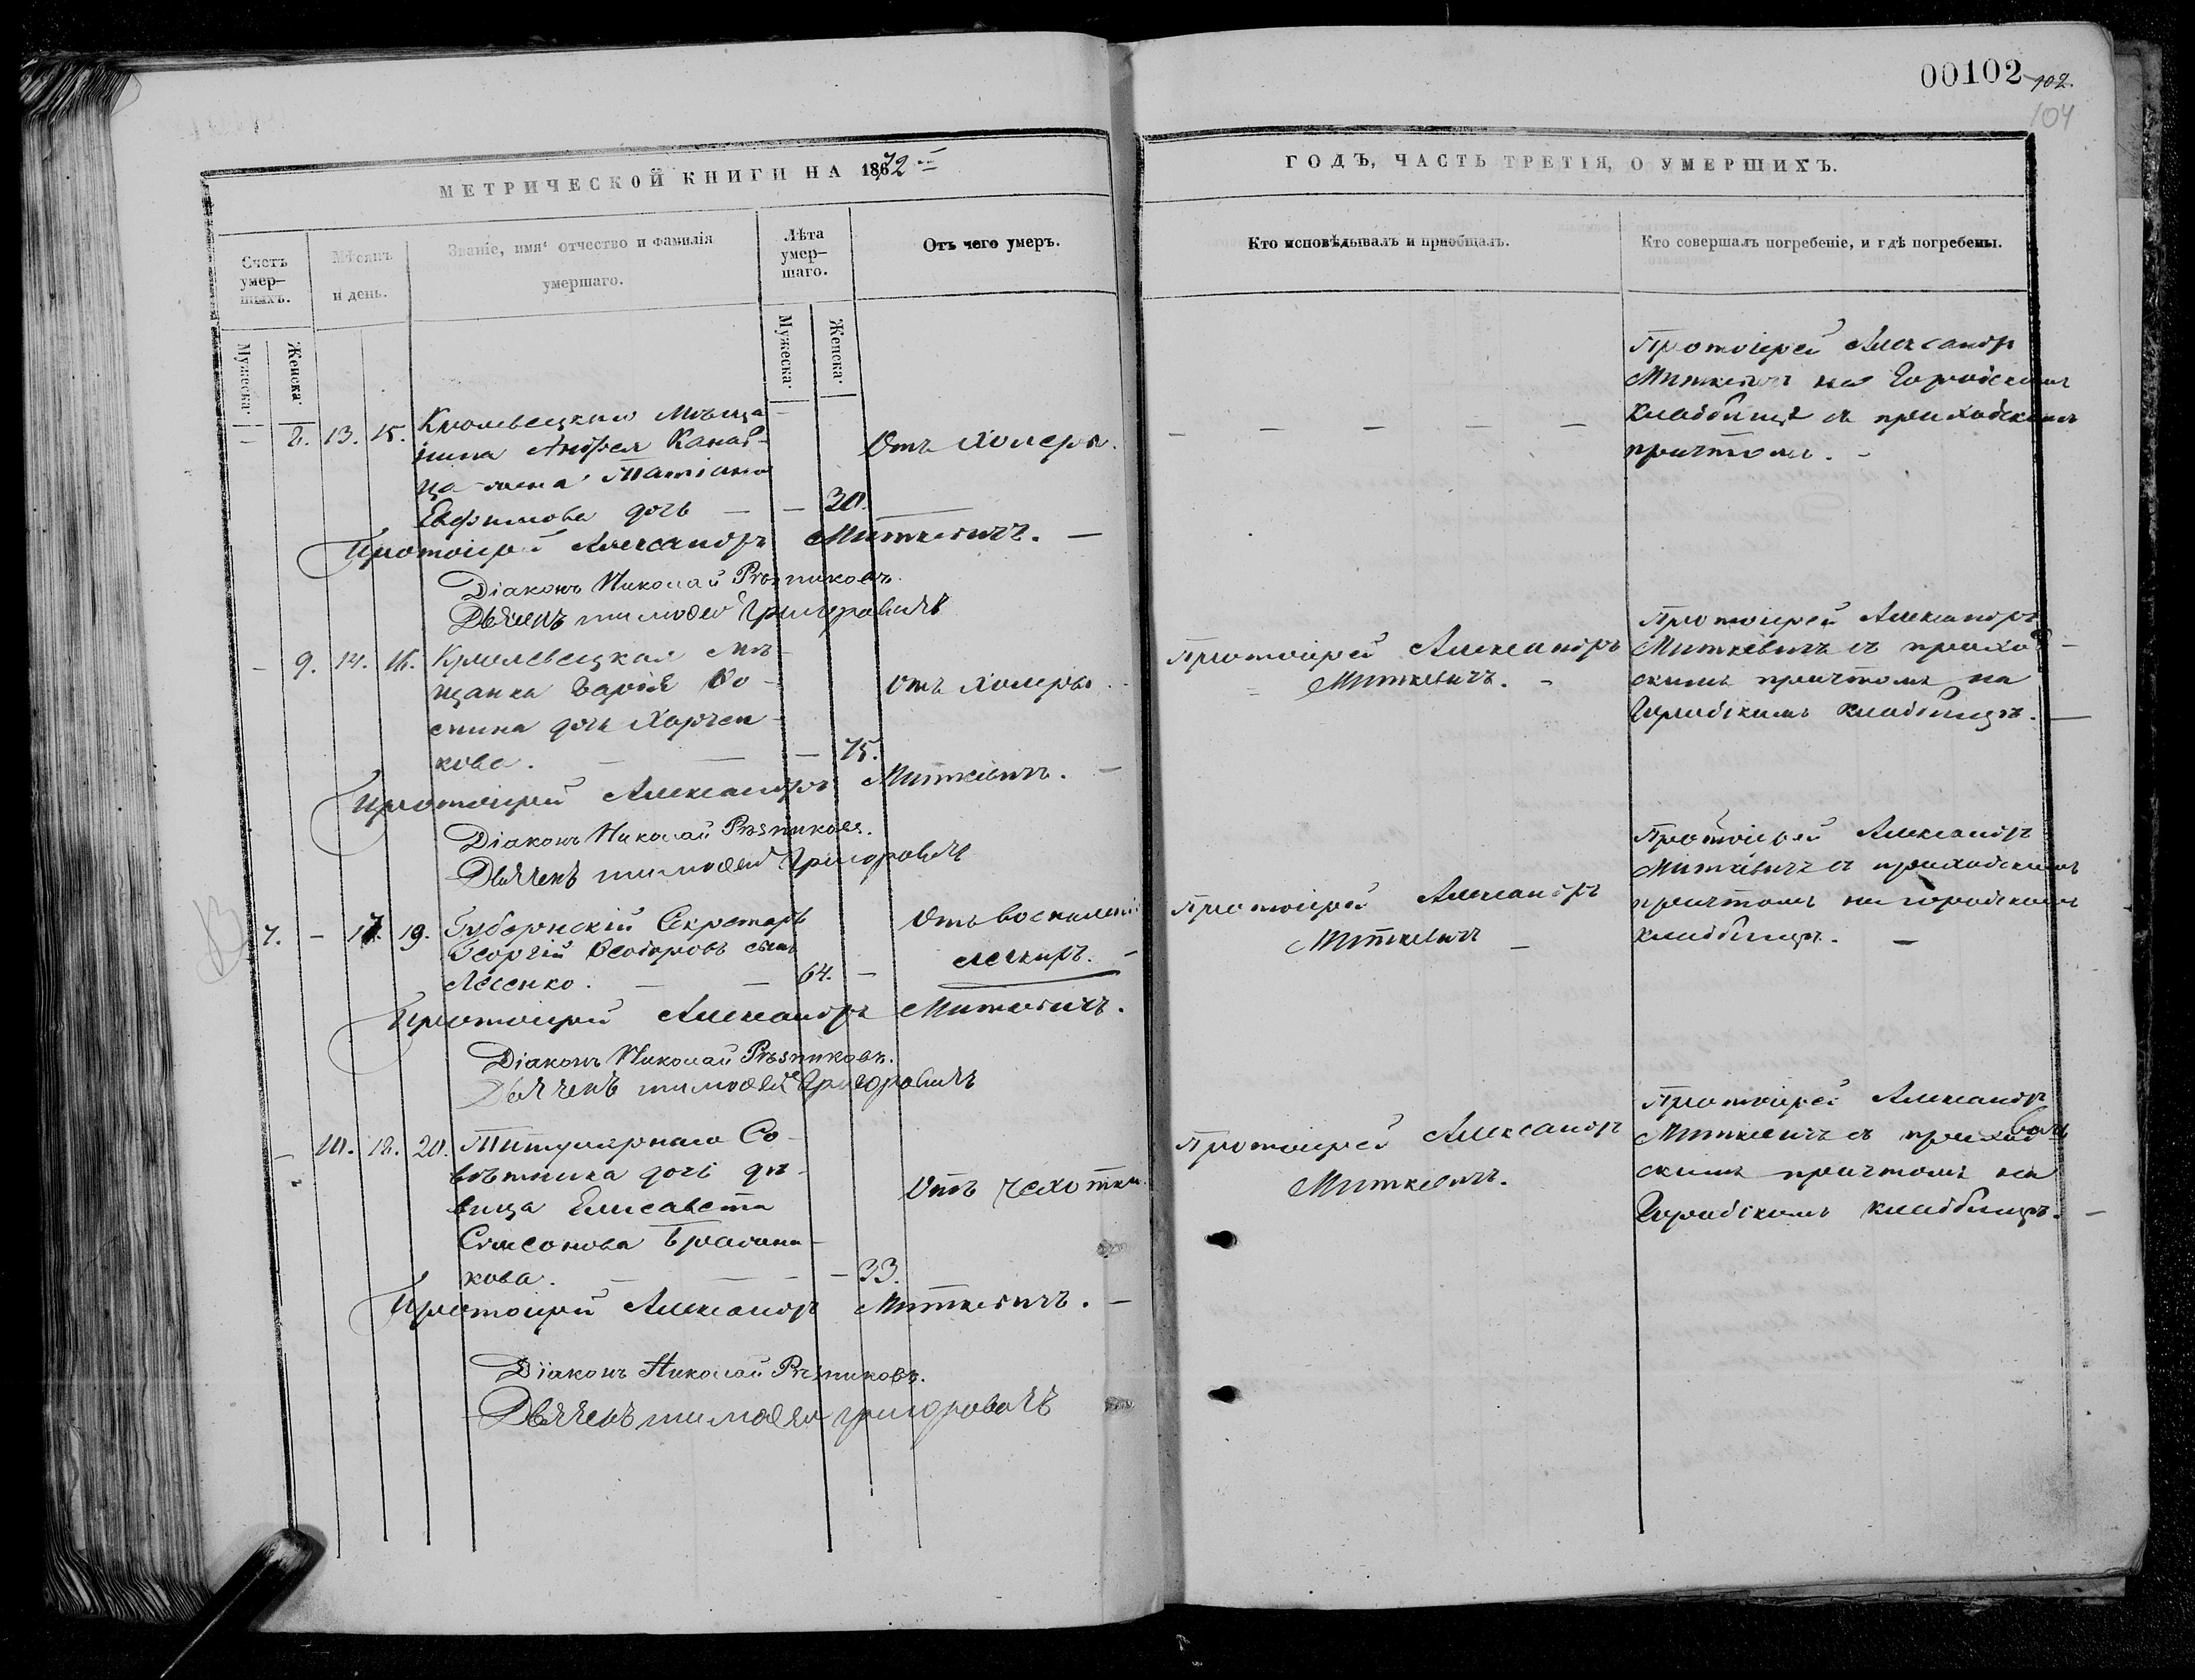 00102 102.
104
МЕТРИЧЕСКОЙ КНИГИ НА 1872
ГОДЪ, ЧАСТЬ ТРЕТІЯ, О УМЕРШИХЪ.
Счетъ умер-шихъ.
Мѣсяцъ и день.
Званіе, имя, отчество и фамилія умершаго.
Лѣта умер-шаго.
Отъ чего умеръ.
Кто исповѣдывалъ и пріобщалъ.
Кто совершалъ погребеніе, и гдѣ погребены.
Мужеска.
Женска.
Мужеска.
Женска.
– 8. 13. 15. Кролевецкаго Мѣща
нина Андрея
ца жена Татіана
Евфимова дочь — — 30.
Отъ холеры.
— — — — —
Протоіерей Александръ
Миткевичъ на Городскомъ
кладбищѣ съ приходскимъ
причтомъ. –
Протоіерей Александръ Миткевичъ. —
Діаконъ Николай Рѣзниковъ.
Дьячекъ тимофей григоровичъ
– 9. 14. 16. Кролевецкая мѣ-
щанка
дочь Харчен-
кова. — — — 75.
Отъ холеры.
Протоіерей Александръ
Миткевичъ. –
Протоіерей Александръ
Миткевичъ съ приход-
скимъ причтомъ на
Городскомъ кладбищѣ. —
Протоіерей Александръ Миткевичъ. –
Діаконъ Николай Рѣзниковъ.
Дьячекъ тимофей григоровичъ
7. – 17. 19. Губернскій Секретарь
Георгій Ѳеодоровъ сынъ
Лесенко. — — 64. —
Отъ воспаленія
легкихъ. –
Протоіерей Александръ
Миткевичъ –
Протоіерей Александръ
Миткевичъ съ приходскимъ
причтомъ на городскомъ
кладбищѣ. –
Протоіерей Александръ Миткевичъ.
Діаконъ Николай Рѣзниковъ.
Дьячекъ тимофей григоровичъ
– 10. 18. 20. Титулярнаго Со-
вѣтника дочь дѣ-
вица Елисавета
Симеонова
кова. — — — — 33.
Отъ чахотки.
Протоіерей Александръ
Миткевичъ.
Протоіерей Александръ
Миткевичъ съ приход
скимъ причтомъ на
Городскомъ кладбищѣ. –
Протоіерей Александръ Миткевичъ. –
Діаконъ Николай Рѣзниковъ.
Дьячекъ тимофей григоровичъ